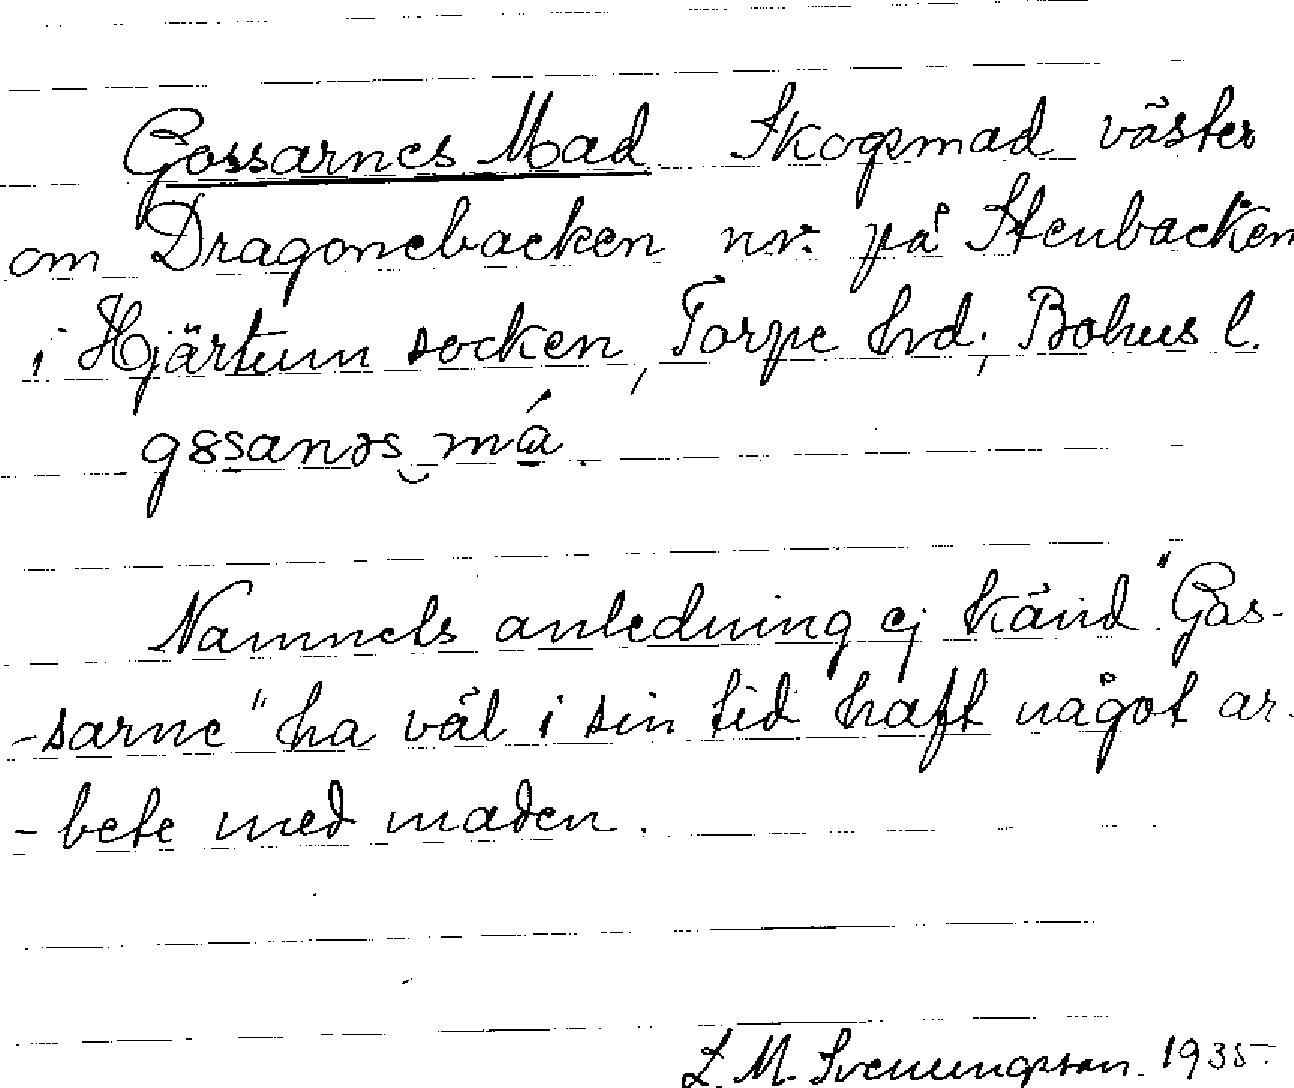 Gossarnes Mad Skogsmad väster
om Dragonebacken nr. på Stenbacken
i Hjärtum socken, Torpe hrd; Bohus l.
g8sanəs má.
Namnets anledning ej känd. "Gos-
-sarne" ha väl i sin tid haft något ar-
-bete med maden.
L. M. Svenungsson. 1935.